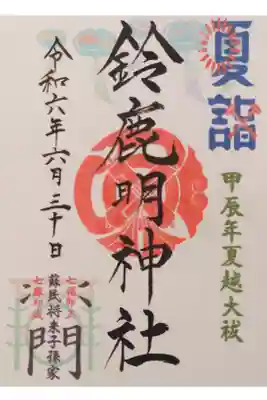 夏詣
甲辰年夏越大祓
鈴鹿明神社
令和六年六月三十日
蘇民将来子孫家
門